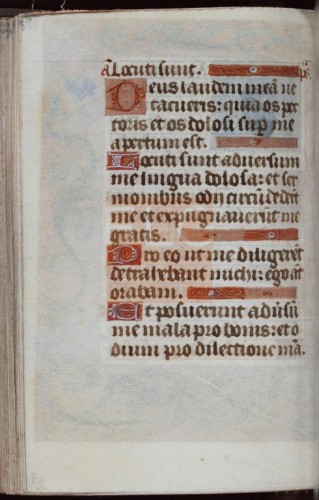 A Locuti sunt. ps
Deus laudem meā ne
tacueris: quia os pec
toris et os dolosi sup me
apertum est.
Locuti sunt adversum
me lingua dolosa: et ser
monibus odij circūdedrt
me et expugnauerūt me
gratis.
Pro eo ut me diligerēt
detrahebant michi: ego āt
orabam.
Et posuerunt adūsū
me mala pro bonis: et o
dium pro dilectione mā.